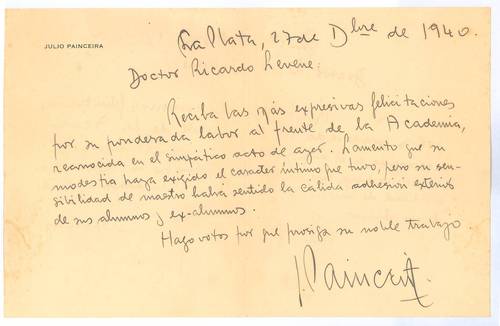 JULIO PAINCEIRA
La Plata, 27 de Dbre de 1940.
Doctor Ricardo Levene:
Reciba las más expresivas felicitaciones
por su ponderada labor al frente de la Academia,
reconocida en el simpático acto de ayer. Lamento que su
modestia haya exigido el caracter íntimo que tuvo, pero su sen-
sibilidad de maestro habrá sentido la cálida adhesión exterior
de sus alumnos y ex-alumnos.
Hago votos por que prosiga su noble trabajo
J. Painceira